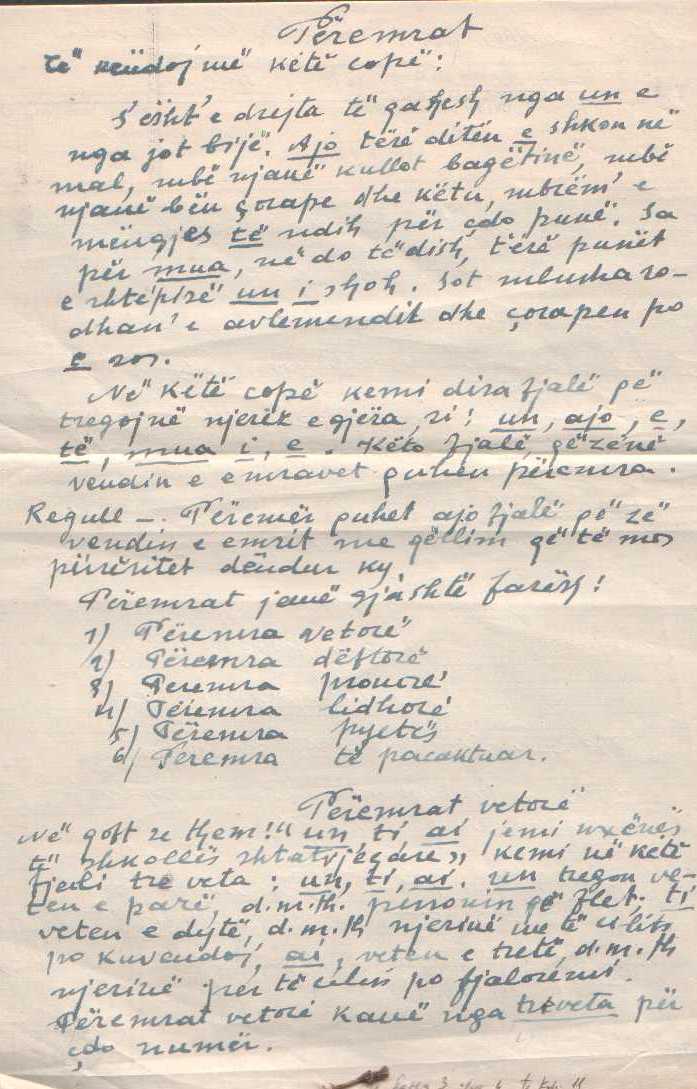 Përemrat
Të këndojmë këtë copë:
S'ësht' e drejta të qahesh nga un e
nga jot bijë. Ajo tërë ditën e shkon në
mal, mbë njanë kullot bagëtinë, mbë
njanë bën çorape dhe këtu, mbrëm' e
mëngjes të ndih për çdo punë. Sa
për mua, në do të dish, tërë punët
e shtëpisë un i shoh. Sot mbusha ro-
dhan' e avlemendit dhe çorapen po
e sos.
Në këtë copë kemi disa fjalë që
tregojnë njerëz e gjëra, si: un, ajo, e,
të, mua i, e. Këto fjalë, që zënë
vendin e emravet quhen përemra.
Regull -. Përemër quhet ajo fjalë që zë
vendin e emrit me qëllim që të mos
përsëritet dëndur ky.
Përemrat janë gjashtë farësh:
1) Përemra vetorë
2) Përemra dëftorë
3) Përemra pronorë
4) Përemra lidhorë
5) Përemra pyetës
6) Përemra të pacaktuar.
Përemrat vetorë
Në qoft se them: "un ti ai jemi nxënës
të shkollës shtatvjeçare,, kemi në këtë
fjali tre veta: un, ti, ai. un tregon ve-
ten e parë, d.m.th. personin që flet. ti
veten e dytë, d.m.th njerinë me të cilin
po kuvendoj, ai, veten e tretë, d.m.th
njerinë për të cilin po fjalosemi.
Përemrat vetorë kanë nga tre veta për
çdo numër.